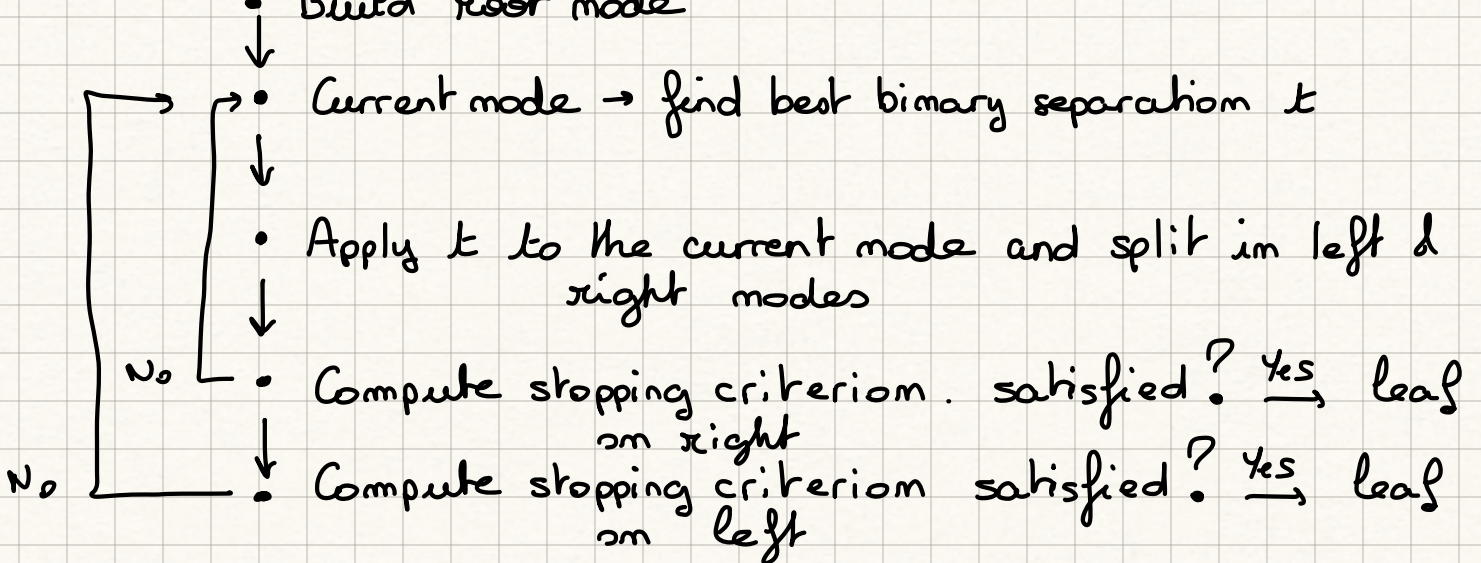 Build root node
Current node → find best binary separation t
Apply t to the current node and split in left &
right nodes
No Compute stopping criterion. satisfied? Yes → leaf
on right
No Compute stopping criterion satisfied? Yes → leaf
on left